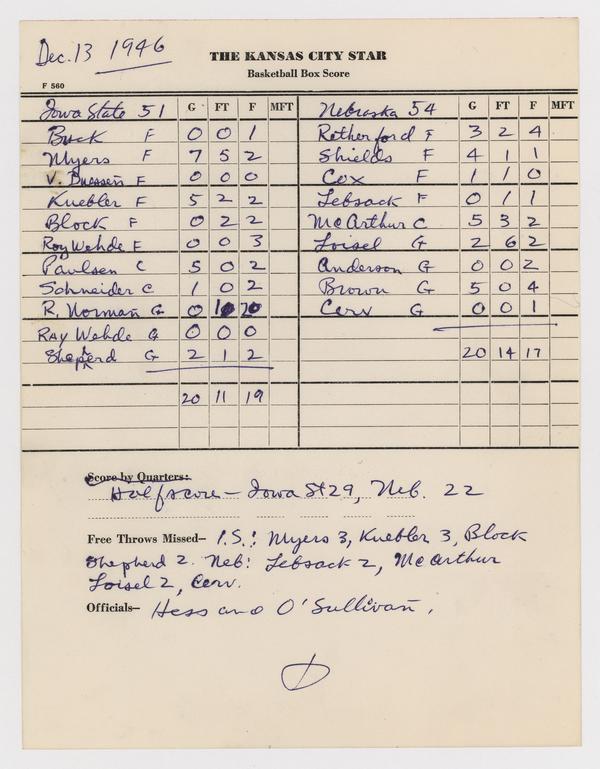 Dec. 13 1946
THE KANSAS CITY STAR
Basketball Box Score
F 560
Iowa State 51 G FT F MFT
Buck F 0 0 1
Myers F 7 5 2
V. Buessen F 0 0 0
Kuebler F 5 2 2
Block F 0 2 2
Roy Wehde F 0 0 3
Paulsen C 5 0 2
Schneider C 1 0 2
R. Norman G 0 1
Ray Wehde G 0 0 0
Sheperd G 2 1 2
20 11 19
Nebraska 54 G FT F MFT
Retherford F 3 2 4
Shields F 4 1 1
Cox F 1 1 0
Lebsack F 0 1 1
McArthur C 5 3 2
Loisel G 2 6 2
Anderson G 0 0 2
Brown G 5 0 4
Cerv G 0 0 1
20 14 17
Score by Quarters:
Halfscore – Iowa St 29, Neb. 22
Free Throws Missed– I.S.: Myers 3, Kuebler 3, Block
Shepherd 2. Neb: Lebsack 2, McArthur
Loisel 2, Cerv.
Officials– Hess and O'Sullivan.